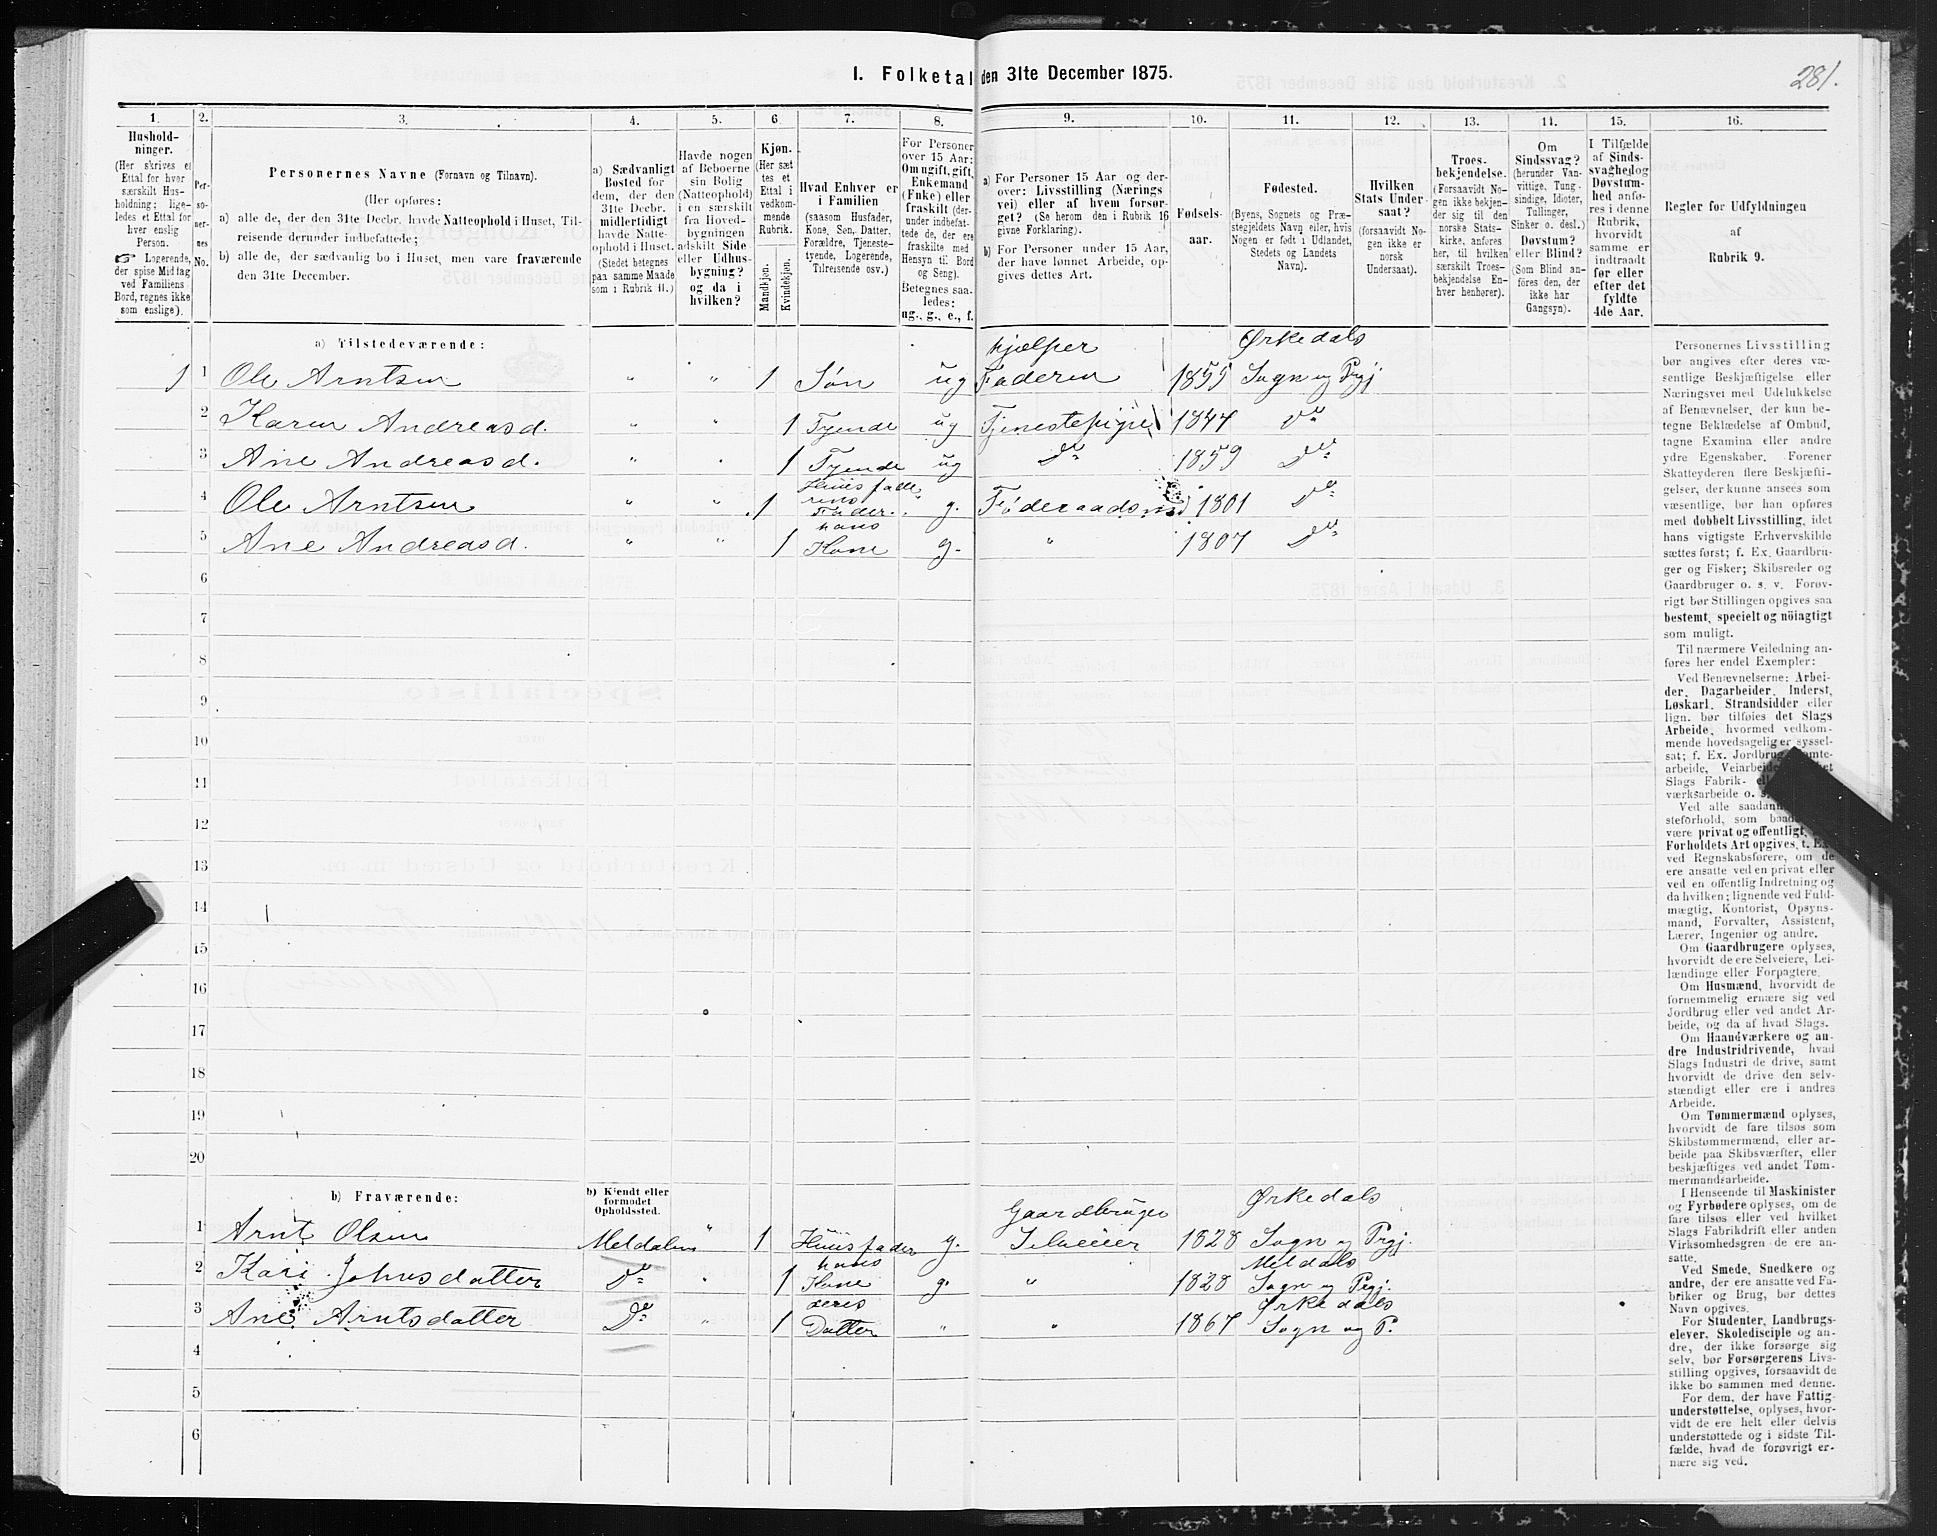 281.
I. Folketal den 31te December 1875.
1. 2. 3. 4. 5. 6. 7. 8. 9. 10. 11. 12. 13. 14. 15. 16.
Hushold-
ninger.
(Her skrives et
Ettal for hver
særskilt Hus-
holdning; lige-
ledes et Ettal for
hver enslig
Person.
☞ Logerende,
der spise Middag
ved Familiens
Bord, regnes ikke
som enslige).
Per-
so-
ner-
nes
No.
Personernes Navne (Fornavn og Tilnavn).
(Her opføres:
a) alle de, der den 31te Decbr. havde Natteophold i Huset, Til-
reisende derunder indbefattede;
b) alle de, der sædvanlig bo i Huset, men vare fraværende
den 31te December.
a) Sædvanligt
Bosted for
dem, der den
31te Decbr.
midlertidigt
havde Natte-
ophold i Huset.
(Stedet betegnes
paa samme Maade
som i Rubrik 11.)
Havde nogen
af Beboerne
sin Bolig
(Natteophold)
i en særskilt
fra Hoved-
bygningen
adskilt Side
eller Udhus-
bygning?
og da i
hvilken?
Kjøn.
(Her sæt-
tes et
Ettal i
vedkom-
mende
Rubrik.
Mandkjøn.
Kvindekjøn.
Hvad Enhver er
i Familien
(saasom Husfader,
Kone, Søn, Datter,
Forældre, Tjeneste-
tyende, Logerende,
Tilreisende osv.)
For Personer
over 15 Aar:
Om ugift, gift,
Enkemand
(Enke) eller
fraskilt (der-
under indbefat-
tede de, der ere
fraskilte med
Hensyn til Bord
og Seng).
Betegnes saa-
ledes:
ug., g., e., f.
a) For Personer 15 Aar og der-
over: Livsstilling (Nærings
vei) eller af hvem forsør-
get? (Se herom den i Rubrik 16
givne Forklaring).
b) For Personer under 15 Aar,
der have lønnet Arbeide, op-
gives dettes Art.
Fødsels-
aar.
Fødested.
(Byens, Sognets og Præ-
stegjeldets Navn eller, hvis
Nogen er født i Udlandet,
Stedets og Landets
Navn).
Hvilken
Stats Under
saat?
(forsaavidt No-
gen ikke er
norsk
Undersaat).
Troes-
bekjendelse.
(Forsaavidt No-
gen ikke bekjen-
der sig til den
norske Stats-
kirke, anføres
her, til hvilken
særskilt Troes-
bekjendelse En-
hver henhører).
Om
Sindssvag?
(herunder Van-
vittige, Tung-
sindige, Idioter,
Tullinger,
Sinker o. desl.)
Døvstum?
eller Blind?
(Som Blind an-
føres den, der
ikke har
Gangsyn).
I Tilfælde
af Sinds-
svaghed og
Døvstum-
hed anfø-
res i denne
Rubrik,
hvorvidt
samme er
indtraadt
før eller
efter det
fyldte
4de Aar.
Regler for Udfyldningen
af
Rubrik 9.
a) Tilstedeværende:
1 1 Ole Arntsen „ „ 1 Søn ug hjælper Faderen 1855 Ørkedals Sogn og Prgj
2 Karen Andreasd. „ „ 1 Tyende ug Tjenestepige 1847 do
3 Ane Andreasd. „ „ 1 Tyende ug Do 1859 Do
4 Ole Arntsen „ „ 1 Huusfaderens Fader. g. Føderaadsmd 1801 Do
5 Ane Andreasd. „ „ 1 hans Kone g. „ 1807 Do
6
7
8
9
10
11
12
13
14
15
16
17
18
19
20
b) Fraværende:
b) Kjendt eller
formodet
Opholdssted.
1 Arnt Olsen Meldalen „ 1 Huusfader g. Gaardbruger Selveier 1828 Ørkedals Sogn og Prgj.
2 Kari Johnsdatter Do „ 1 hans Kone g. „ 1828 Meldals Sogn og Prgj.
3 Ane Arntsdatter Do „ 1 deres Datter „ „ 1867 Ørkedals Sogn og P.
4
5
6
Personernes Livsstilling
bør angives efter deres væ-
sentlige Beskjæftigelse eller
Næringsvei med Udelukkelse
af Benævnelser, der kun be-
tegne Beklædelse af Ombud,
tagne Examina eller andre
ydre Egenskaber. Forener
Skatteyderen flere Beskjæfti-
gelser, der kunne ansees som
væsentlige, bør han opføres
med dobbelt Livsstilling, idet
hans vigtigste Erhvervskilde
sættes først; f. Ex. Gaardbru-
ger og Fisker; Skibsreder og
Gaardbruger o. s. v. Forøv-
rigt bør Stillingen opgives saa
bestemt, specielt og nöiagtigt
som muligt.
Til nærmere Veiledning an-
føres her endel Exempler:
Ved Benævnelserne: Arbei-
der, Dagarbeider, Inderst,
Løskarl, Strandsidder eller
lign. bør tilføies det Slags
Arbeide, hvormed vedkom-
mende hovedsagelig er syssel-
sat; f. Ex. Jordbrug, Tomte-
arbeide, Veiarbeide,
Slags Fabrik-
værksarbeide o.
Ved alle saadan
steforhold, som baade
være privat og offentligt,
Forholdets Art opgives, t. Ex.
ved Regnskabsførere, om de
ere ansatte ved en privat eller
ved en offentlig Indretning og
da hvilken; lignende ved Fuld-
mægtig, Kontorist, Opsyns-
mand, Forvalter, Assistent,
Lærer, Ingeniør og andre.
Om Gaardbrugere oplyses,
hvorvidt de ere Selveiere, Lei-
lændinge eller Forpagtere.
Om Husmænd, hvorvidt de
fornemmelig ernære sig ved
Jordbrug eller ved andet Ar-
beide, og da af hvad Slags.
Om Haandværkere og an-
dre Industridrivende, hvad
Slags Industri de drive, samt
hvorvidt de drive den selv-
stændigt eller ere i andres
Arbeide.
Om Tømmermænd oplyses,
hvorvidt de fare tilsøs som
Skibstømmermænd, eller ar-
beide paa Skibsværfter, eller
beskjæftiges ved andet Tøm-
mermandsarbeide.
I Henseende til Maskinister
og Fyrbødere oplyses, om de
fare tilsøs eller ved hvilket
Slags Fabrikdrift eller anden
Virksomhedsgren de ere an-
satte.
Ved Smede, Snedkere og
andre, der ere ansatte ved Fa-
briker og Brug, bør dettes
Navn opgives.
For Studenter, Landbrugs-
elever, Skoledisciple og an-
dre, der ikke forsørge sig
selv, bør Forsørgerens Livs-
stilling opgives, forsaavidt de
ikke bo sammen med denne.
For dem, der have Fattig-
understøttelse, oplyses, hvor-
vidt de ere helt eller delvis
understøttede og i sidste Til-
fælde, hvad de forøvrigt er-
nære sig ved.